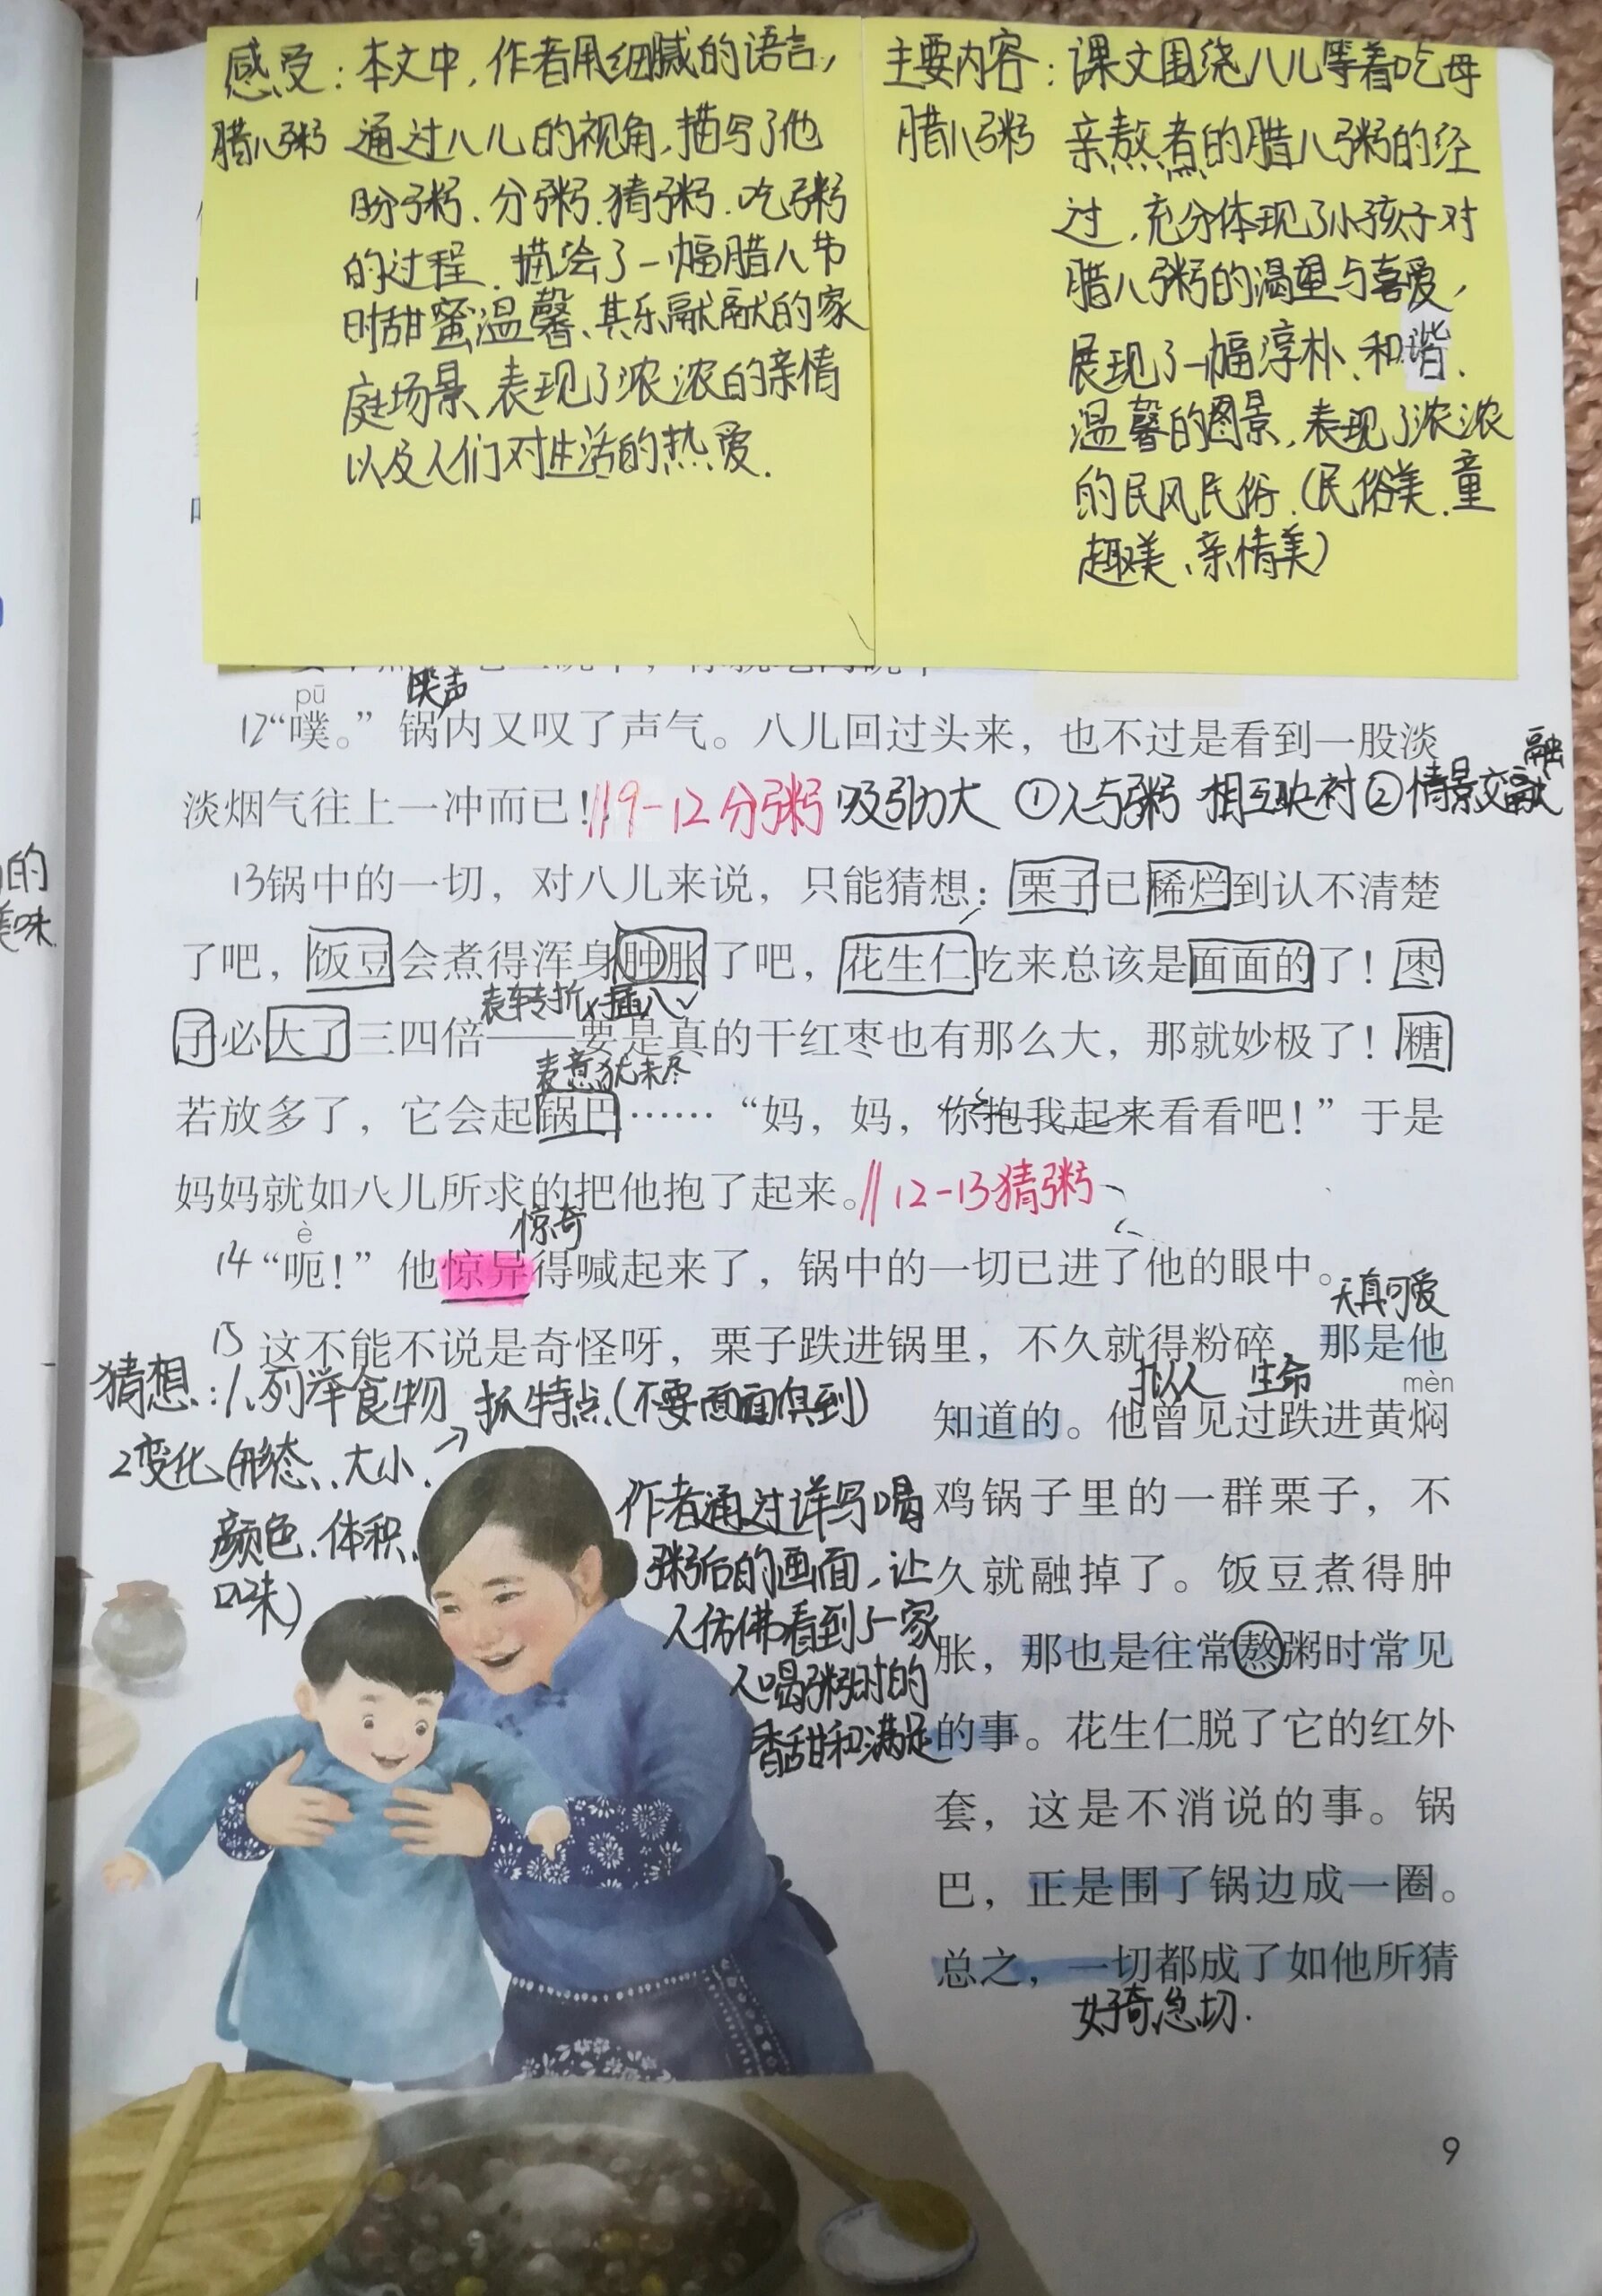 感受：本文中，作者用细腻的语言，
腊八粥 通过八儿的视角，描写了他
盼粥、分粥、猜粥、吃粥
的过程、描绘了一幅腊八节
时甜蜜温馨、其乐融融的家
庭场景、表现了浓浓的亲情
以及人们对生活的热爱.
主要内容：课文围绕八儿等着吃母
腊八粥 亲熬煮的腊八粥的经
过，充分体现了小孩子对
腊八粥的渴望与喜爱，
展现了一幅淳朴、和谐、
温馨的图景，表现了浓浓
的民风民俗.（民俗美、童
趣美、亲情美）
pū
12“噗。”锅内又叹了声气。八儿回过头来，也不过是看到一股淡
融
淡烟气往上一冲而已！‖9-12分粥 吸引力大 ①人与粥 相互映衬②情景交
13锅中的一切，对八儿来说，只能猜想：栗子已稀烂到认不清楚
了吧，饭豆会煮得浑身肿胀了吧，花生仁吃来总该是面面的了！枣
表转折×插入✓
子必大了三四倍——要是真的干红枣也有那么大，那就妙极了！糖
表意犹未尽
若放多了，它会起锅巴……“妈，妈，你抱我起来看看吧！”于是
妈妈就如八儿所求的把他抱了起来。‖12-13猜粥
è
惊奇
14“呃！”他惊异得喊起来了，锅中的一切已进了他的眼中。
天真可爱
15这不能不说是奇怪呀，栗子跌进锅里，不久就得粉碎，那是他
猜想：1、列举食物 抓特点（不要面面俱到）
拟人 生命
mèn
知道的。他曾见过跌进黄焖
2变化（形态、大小、→
颜色、体积、
口味）
鸡锅子里的一群栗子，不
久就融掉了。饭豆煮得肿
胀，那也是往常熬粥时常见
的事。花生仁脱了它的红外
套，这是不消说的事。锅
巴，正是围了锅边成一圈。
总之，一切都成了如他所猜
好奇急切.
作者通过详写喝
粥后的画面，让
人仿佛看到了一家
人喝粥时的
香甜和满足
9
的
美味